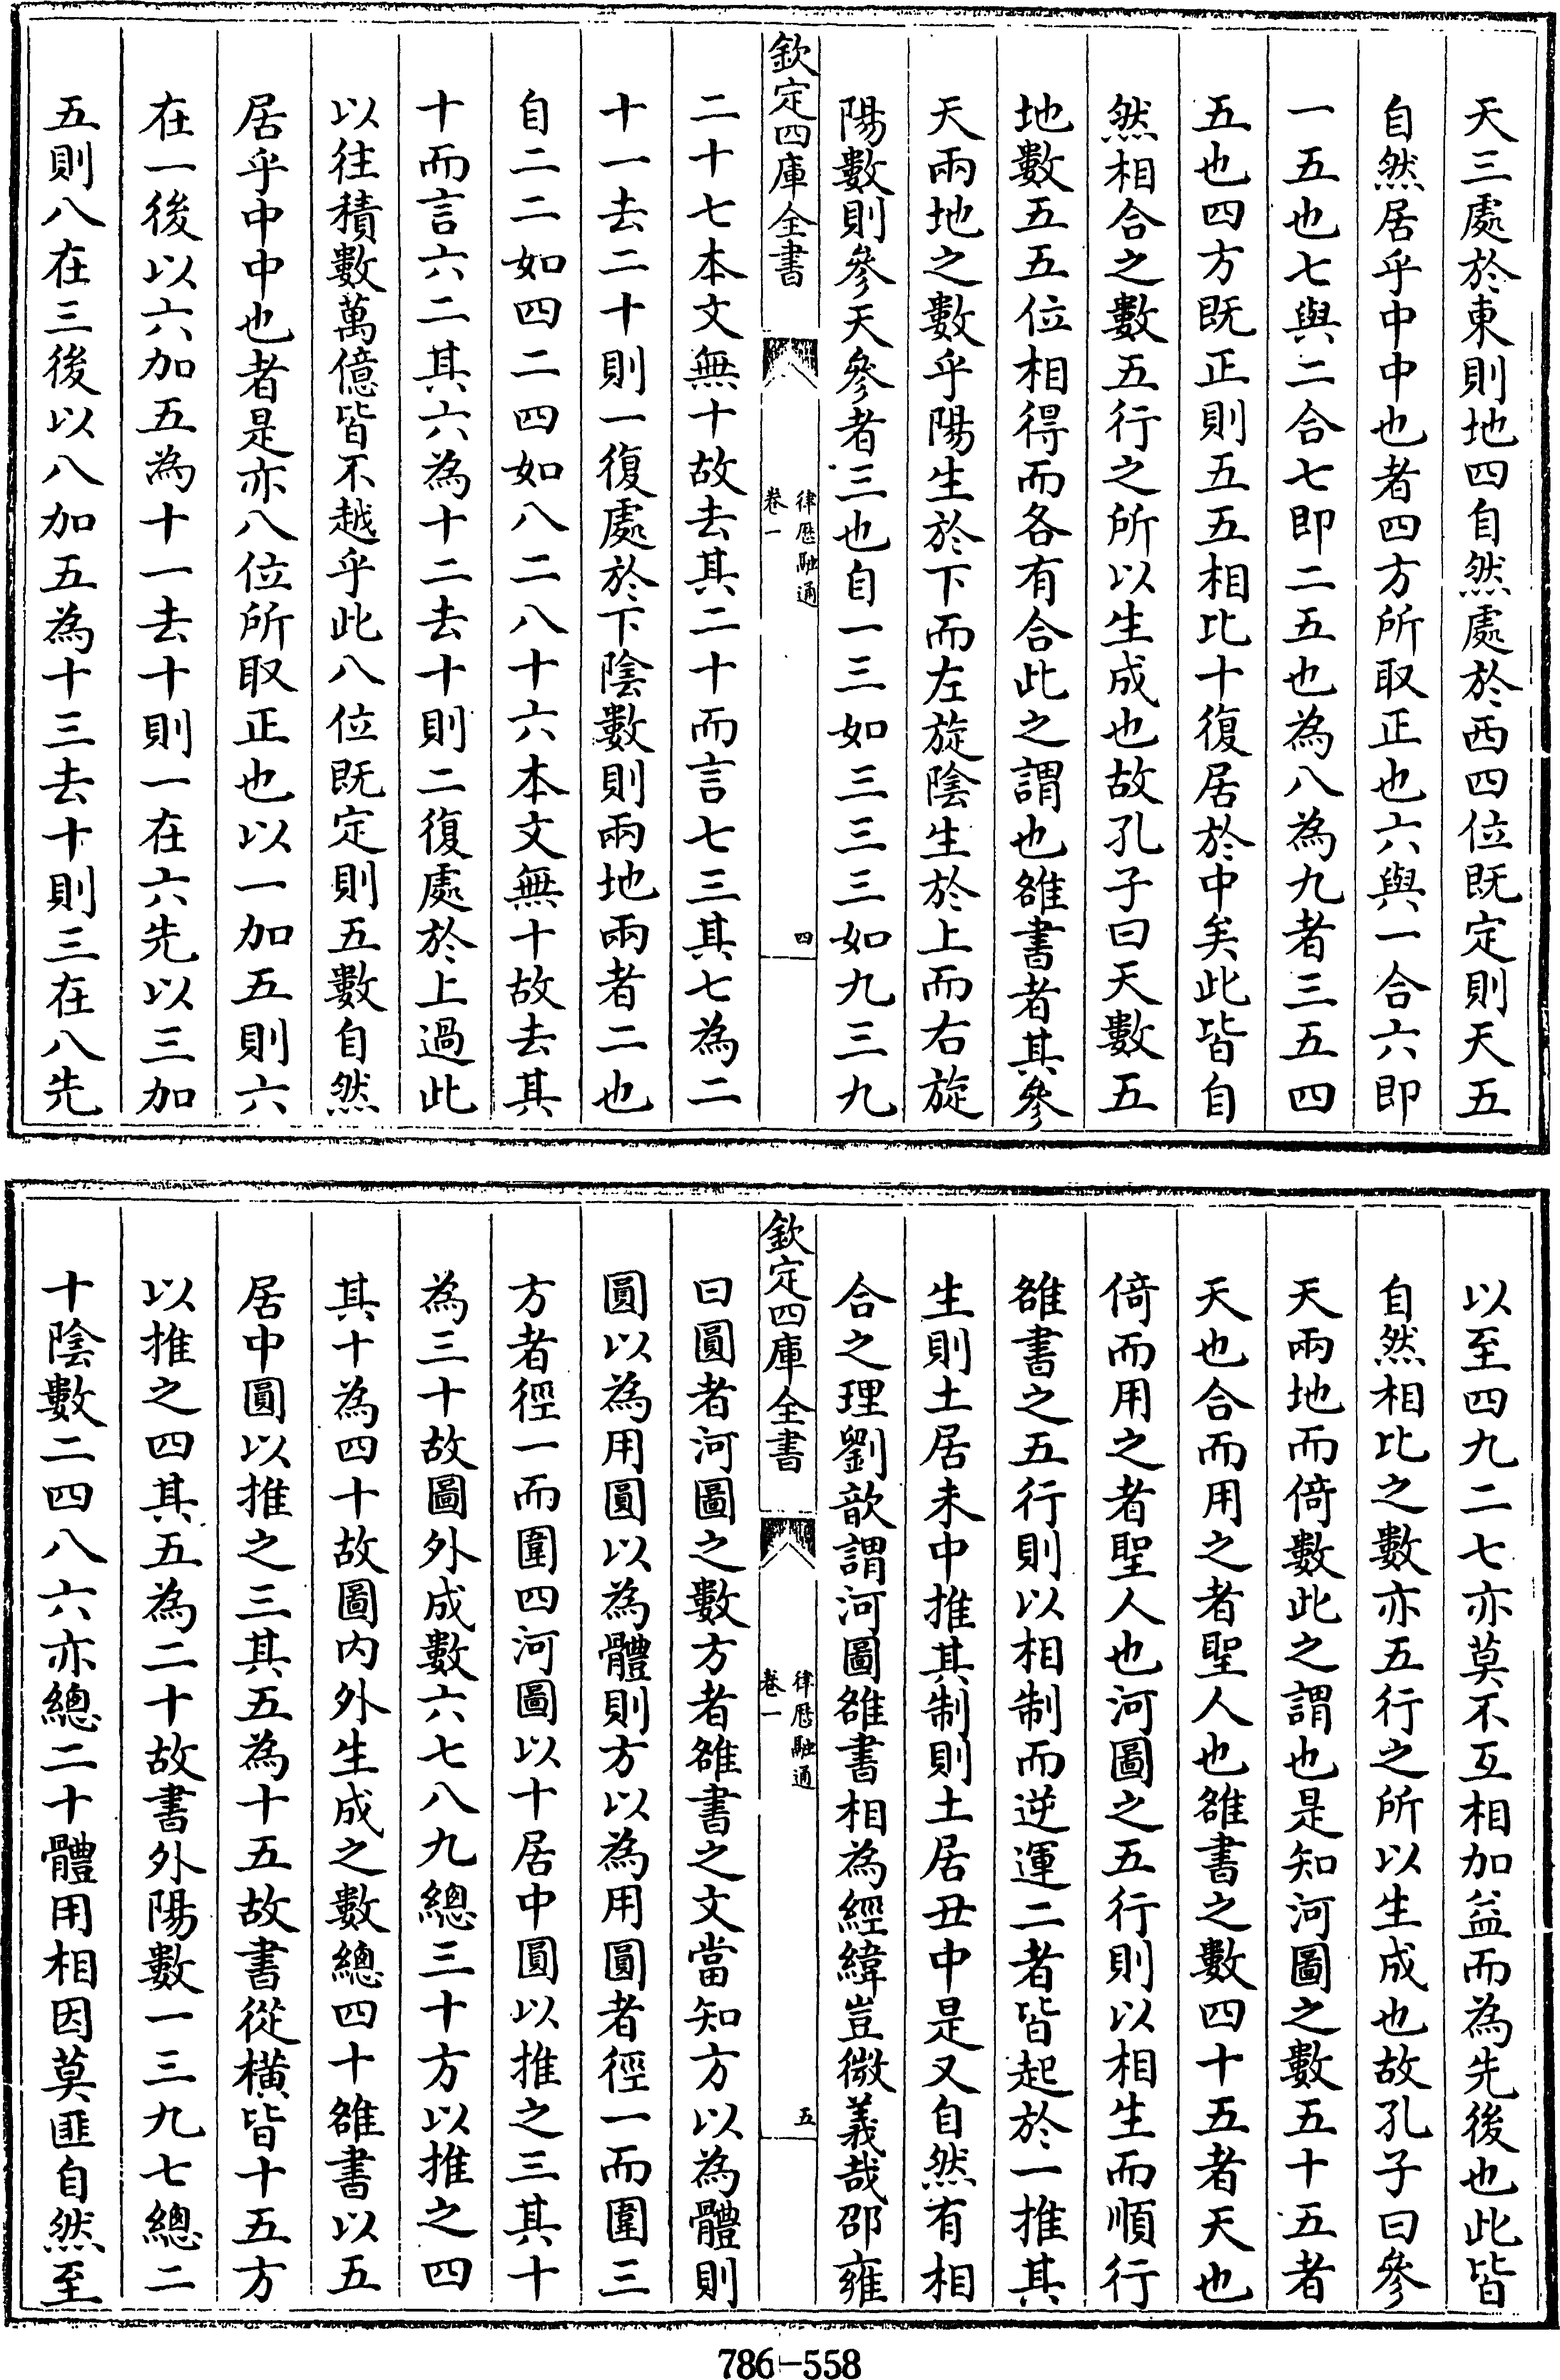 天三處於東則地四自然處於西四位既定則天五
自然居乎中中也者四方所取正也六與一合六即
一五也七與二合七即二五也為八為九者三五四
五也四方既正則五五相比十復居於中矣此皆自
然相合之數五行之所以生成也故孔子曰天數五
地數五五位相得而各有合此之謂也雒書者其參
天兩地之數乎陽生於下而左旋陰生於上而右旋
陽數則參天參者三也自一三如三三三如九三九
欽定四庫全書
律歷融通
卷一
四
二十七本文無十故去其二十而言七三其七為二
十一去二十則一復處於下陰數則兩地兩者二也
自二二如四二四如八二八十六本文無十故去其
十而言六二其六為十二去十則二復處於上過此
以往積數萬億皆不越乎此八位既定則五數自然
居乎中中也者是亦八位所取正也以一加五則六
在一後以六加五為十一去十則一在六先以三加
五則八在三後以八加五為十三去十則三在八先
以至四九二七亦莫不互相加益而為先後也此皆
自然相比之數亦五行之所以生成也故孔子曰參
天兩地而倚數此之謂也是知河圖之數五十五者
天也合而用之者聖人也雒書之數四十五者天也
倚而用之者聖人也河圖之五行則以相生而順行
雒書之五行則以相制而逆運二者皆起於一推其
生則土居未中推其制則土居丑中是又自然有相
合之理劉歆謂河圖雒書相為經緯豈微義哉邵雍
欽定四庫全書
律歷融通
卷一
五
曰圓者河圖之數方者雒書之文當知方以為體則
圓以為用圓以為體則方以為用圓者徑一而圍三
方者徑一而圍四河圖以十居中圓以推之三其十
為三十故圖外成數六七八九總三十方以推之四
其十為四十故圖內外生成之數總四十雒書以五
居中圓以推之三其五為十五故書從橫皆十五方
以推之四其五為二十故書外陽數一三九七總二
十陰數二四八六亦總二十體用相因莫匪自然至
786-558